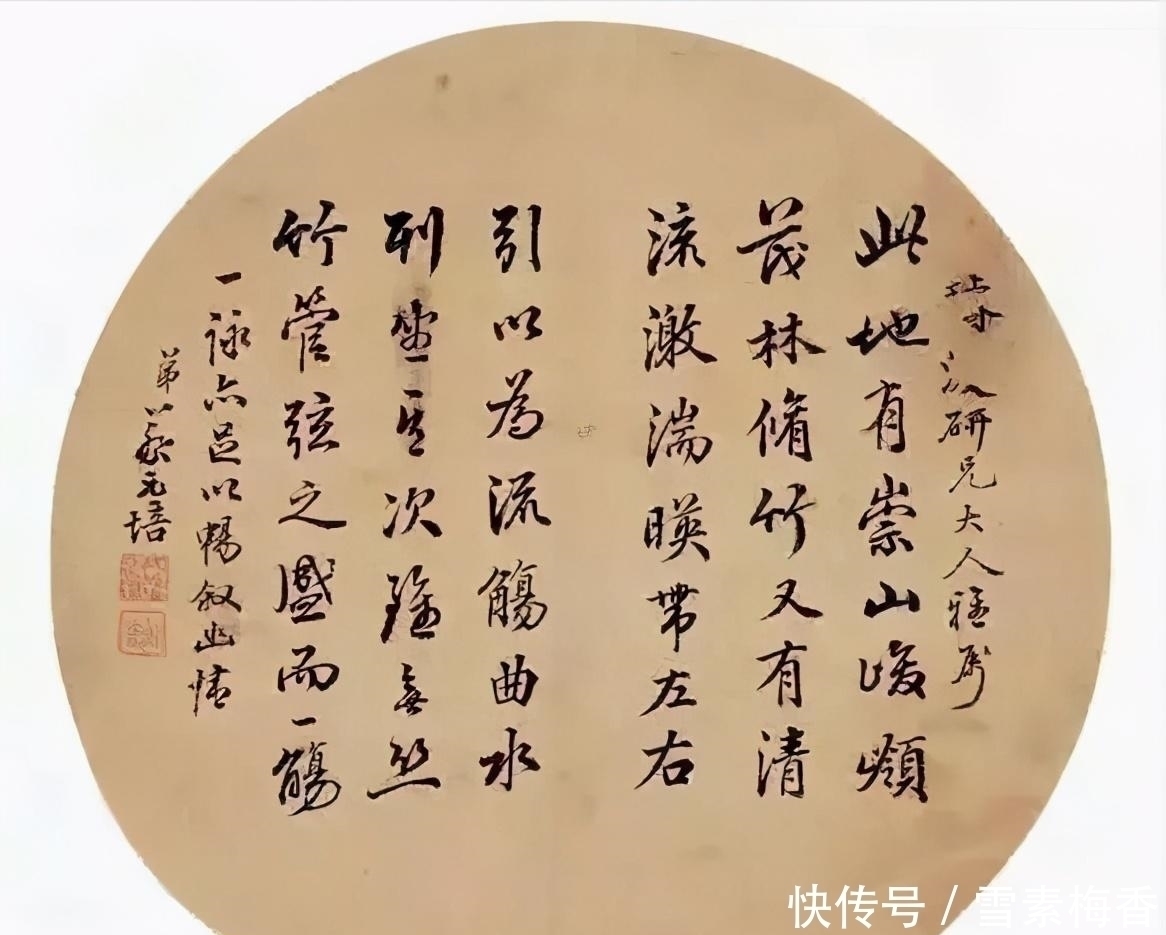 研兄大人雅属
此地有崇山峻領
茂林脩竹又有清
流激湍暎帶左右
引以為流觴曲水
列坐其次雖無絲
竹管弦之盛而一觴
一詠亦足以暢叙幽情
弟蔡元培
快传号 / 雪素梅香